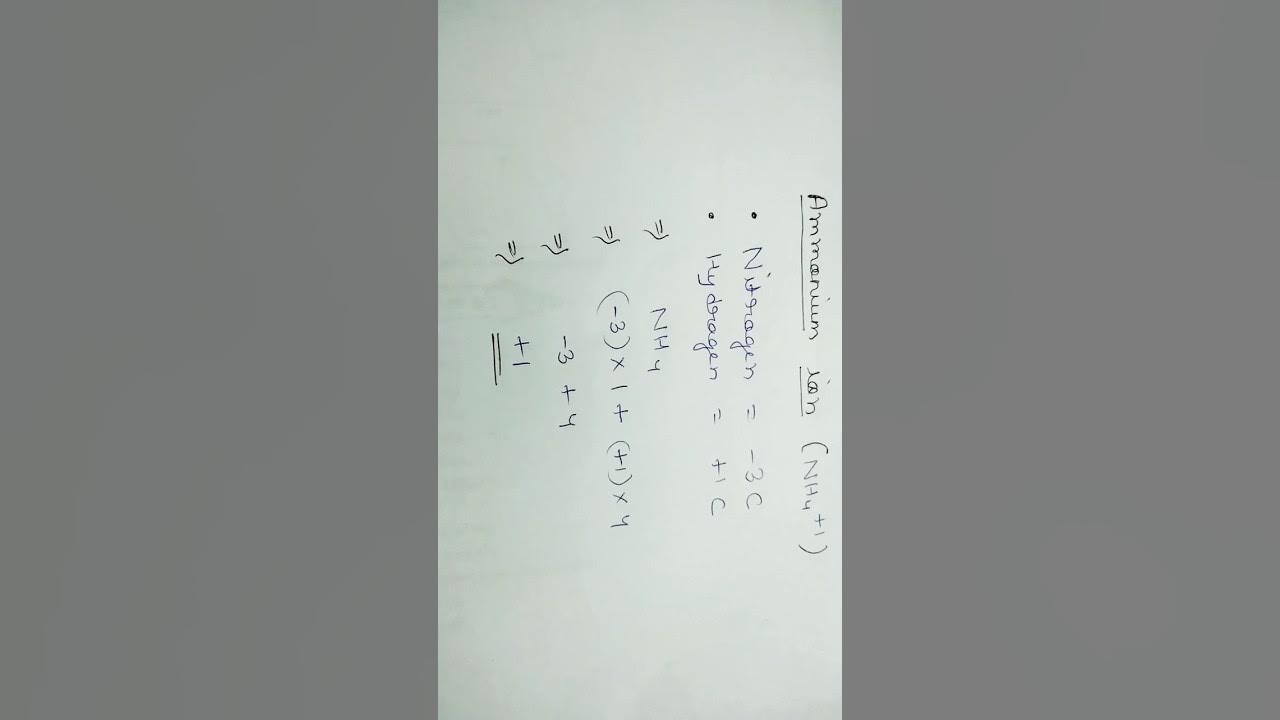 Ammonium ion (NH₄⁺¹)
• Nitrogen = -3 C
• Hydrogen = +1 C
⇒ NH₄
⇒ (-3) × 1 + (+1) × 4
⇒ -3 + 4
⇒ +1